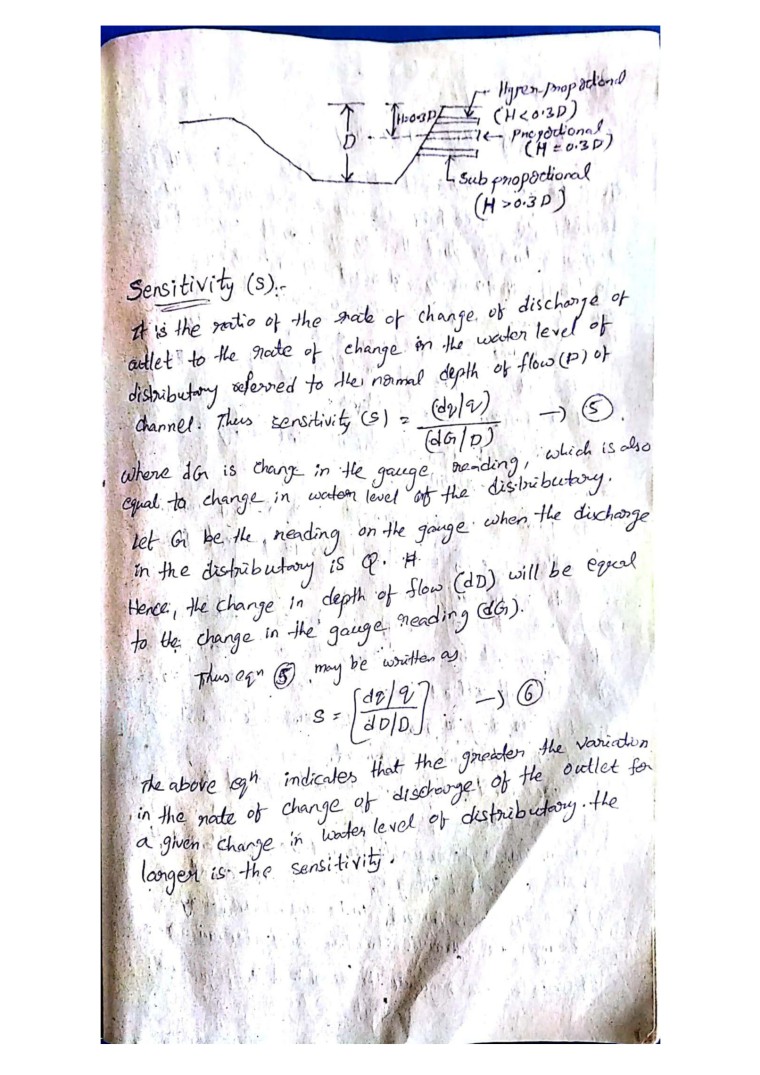 Hyper-propotional
(H<0.3D)
H=0.3D
D
← Propotional
(H = 0.3D)
Sub propotional
(H >0.3D)
Sensitivity (S):-
It is the ratio of the rate of change of discharge of
outlet to the rate of change in the water level of
distributary referred to the normal depth of flow (D) of
channel. Thus sensitivity (S) = (dq/q) / (dG/D) → ⑤
where dG is change in the gauge reading, which is also
equal to change in water level of the distributary.
Let G be the reading on the gauge when the discharge
in the distributary is Q.
Hence, the change in depth of flow (dD) will be equal
to the change in the gauge reading (dG).
Thus eqn ⑤ may be written as
S = [dq/q / dD/D] → ⑥
The above eqn indicates that the greater the variation
in the rate of change of discharge of the outlet for
a given change in water level of distributary. the
larger is the sensitivity.